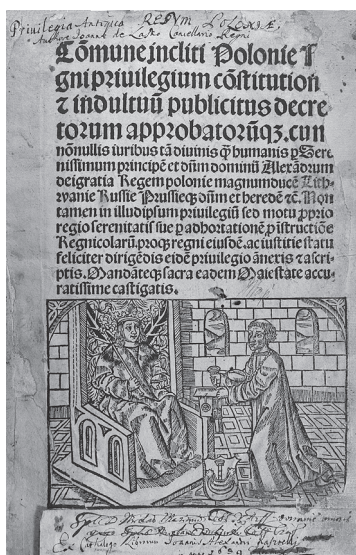 Privilegia Antiqua REGUM POLONIÆ.
Authore Joanne de Lasko Cancellario Regni
Cōmune incliti Polonie r
gni priuilegium cōstitution
⁊ indultuū publicitus decre
torum approbatorūqꝫ. cun
nōnullis iuribus tā diuinis ꝙ̄ humanis ꝑ Sere
nissimum principē et dn̄m dominū Alexādrum
dei gratia Regem polonie magnum ducē Lith⸗
vanie Russie Prussieqꝫ dn̄m et heredē ⁊č. Non
tamen in illud ipsum priuilegiū sed motu ꝓprio
regio serenitatis sue ꝑ adhortationē ꝓ istructiōe
Regnicolarū. proqꝫ regni eiusdē. ac iustitie statu
feliciter dirigēdis eidē priuilegio ānexis ⁊ ascri
ptis. Mandāteqꝫ sacra eadem Maiestate accu⸗
ratissime castigatis.
Ex Catalogo Librorum Joannis Alexandri